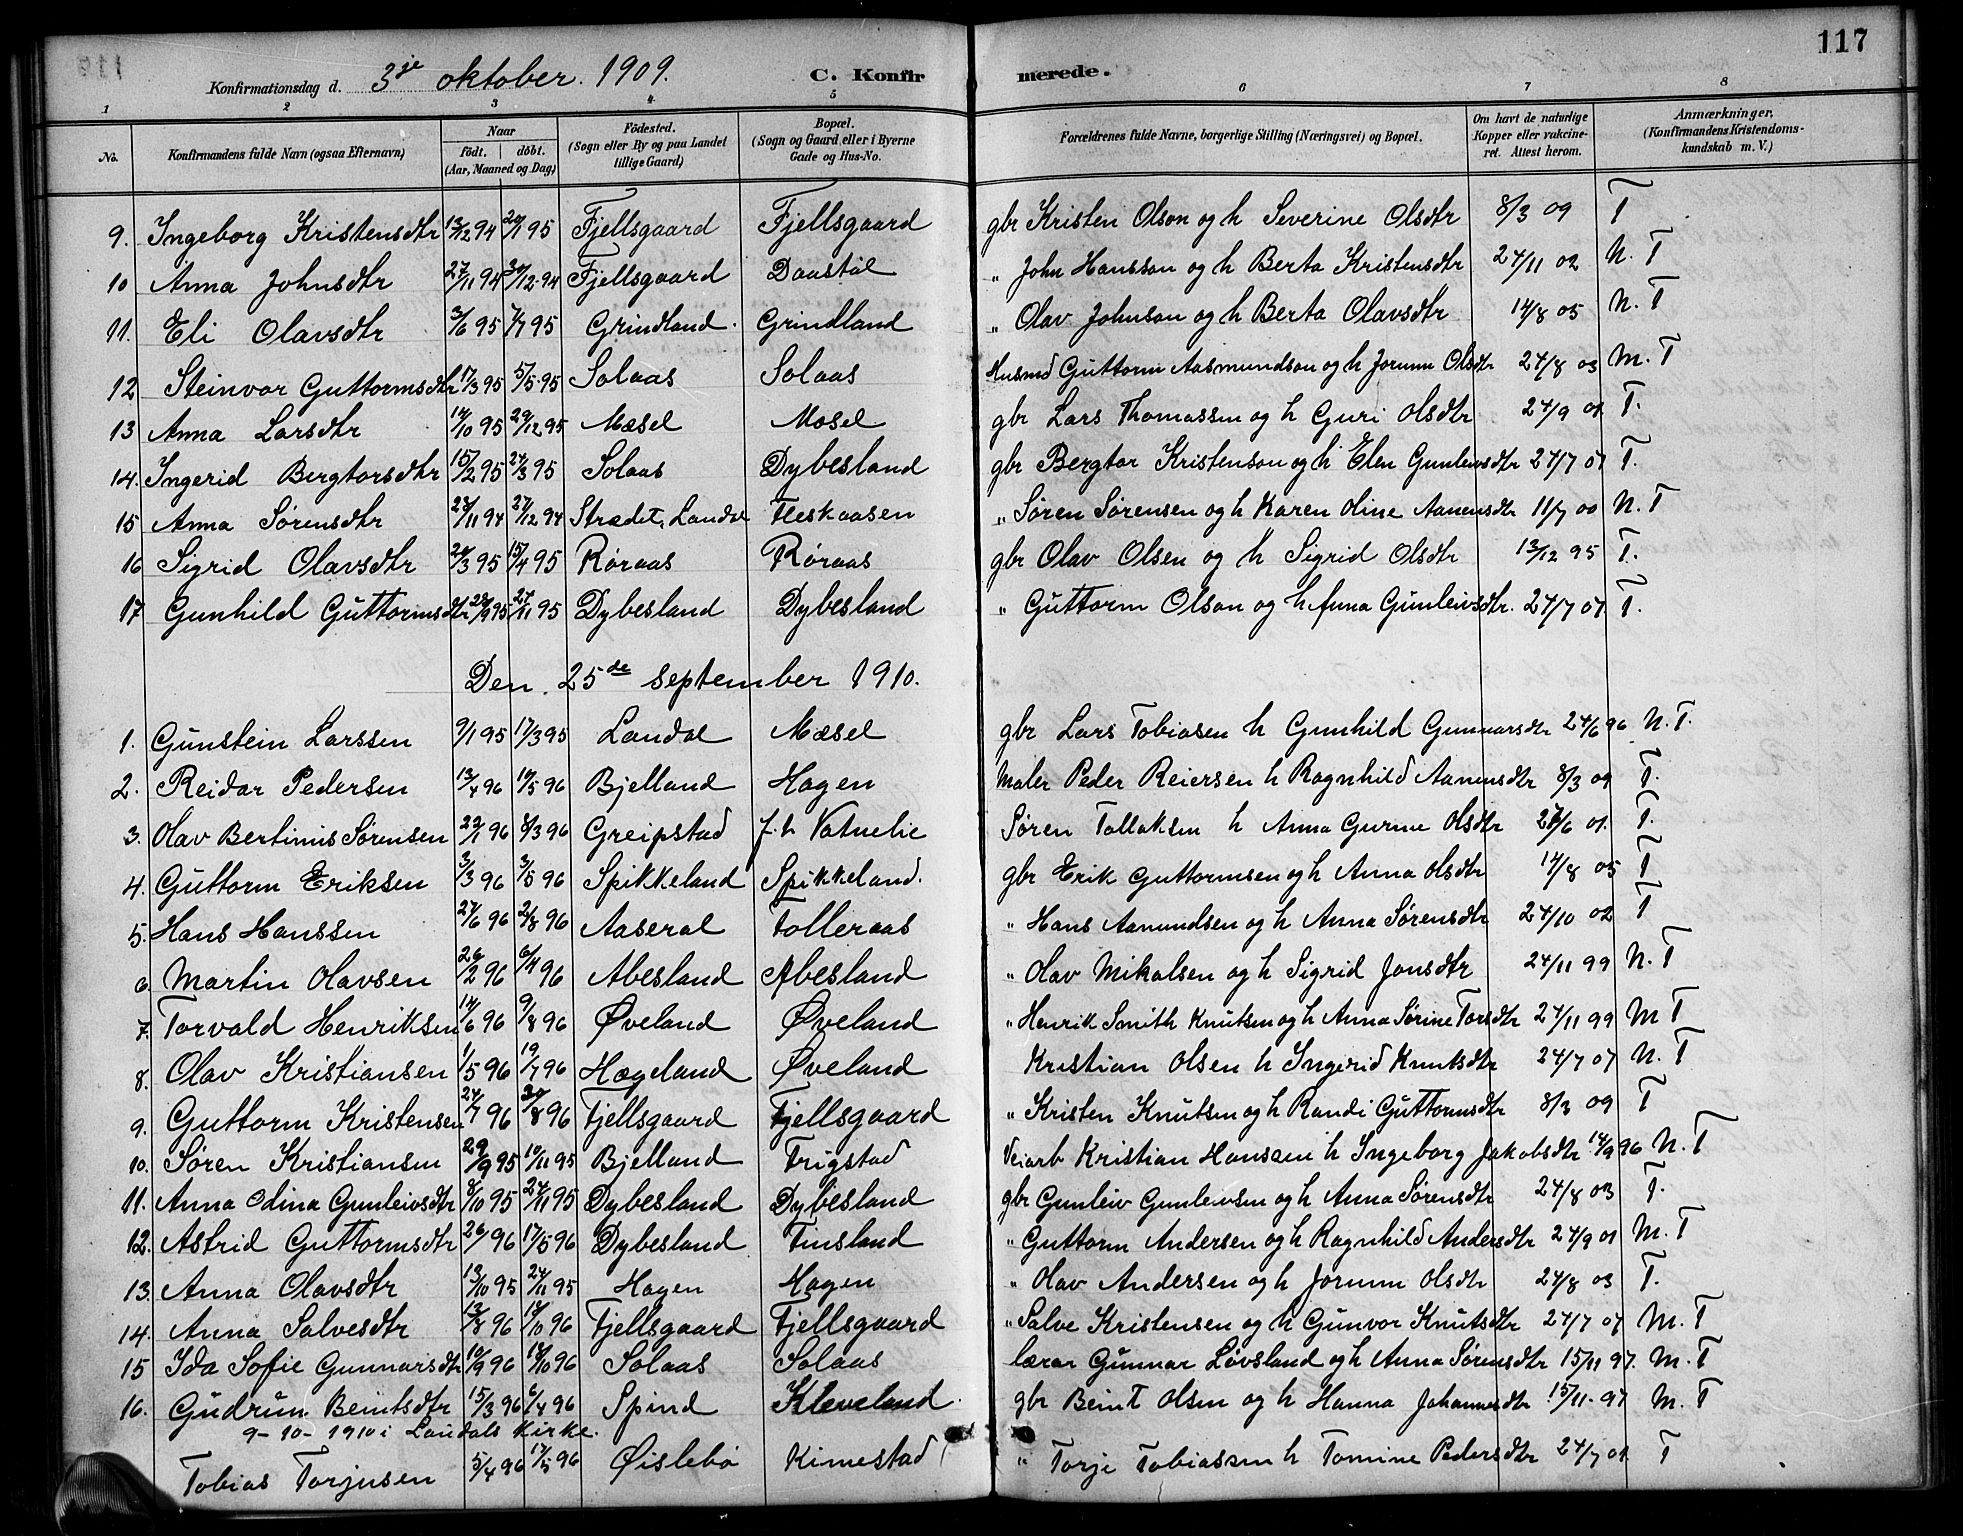 117
Konfirmationsdag d. 3je oktober. 1909. C. Konfirmerede.
1 2 3 4 5 6 7 8
No. Konfirmandens fulde Navn (ogsaa Efternavn) Naar født. døbt. (Aar, Maaned og Dag) Fødested. (Sogn eller By og paa Landet tillige Gaard) Bopæl. (Sogn og Gaard eller i Byerne Gade og Hus-No. Forældrenes fulde Navne, borgerlige Stilling (Næringsvei) og Bopæl. Om havt de naturlige Kopper eller vakcineret. Attest herom. Anmærkninger. (Konfirmandens Kristendomskundskab m. V.)
9. Ingeborg Kristensdtr 13/12 94 20/1 95 Fjellsgaard Fjellsgaard gbr Kristen Olson og h Severine Olsdtr 8/3 09 T
10 Anna Johnsdtr 27/11 94 30/12 94 Fjellsgaard Daastøl " John Hansson og h Berta Kristensdtr 24/11 02 N. T
11. Eli Olavsdtr 3/6 95 7/7 95 Grindland. Grindland " Olav Johnson og h Berta Olavsdtr 14/8 05 N. T
12 Steinvor Guttormsdtr 17/3 95 5/5 95 Solaas Solaas Husmd Guttorm Aasmundson og h Jorunn Olsdtr 24/8 03 M. T
13 Anna Larsdtr 14/10 95 29/12 95 Mæsel Mosel gbr Lars Thomassen og h Guri Olsdtr 24/9 01 T.
14. Ingerid Bergtorsdtr 15/2 95 24/3 95 Solaas Dybesland gbr Bergtor Kristenson og h Elen Gunleivsdtr 24/7 07 T.
15 Anna Sørensdtr 28/11 94 27/12 94 Strædet, Landal Fleskaasen " Søren Sørensen og h Karen Oline Aanensdtr 11/7 00 N. T
16 Sigrid Olavsdtr 20/3 95 15/4 95 Røraas Røraas gbr Olav Olsen og h Sigrid Olsdtr 13/12 95 T.
17 Gunhild Guttormsdtr 28/9 95 27/11 95 Dybesland Dybesland " Guttorm Olson og h Anna Gunleivsdtr. 24/7 07 T.
Den 25de september 1910.
1. Gunstein Larssen 9/1 95 17/3 95 Landal Mæsel gbr Lars Tobiasen h Gunhild Gunnarsdtr 24/6 96 N. T.
2. Reidar Pedersen 13/4 96 10/5 96 Bjelland Hagen Maler Peder Reiersen h Ragnhild Aanensdtr 8/3 09 T.
3. Olav Bertinius Sørensen 22/1 96 8/3 96 Greipstad f.h Vatnelie Søren Tallaksen h Anna Gurine Olsdtr 01. T.
4. Guttorm Eriksen 3/3 96 3/5 96 Spikkeland Spikkeland. gbr Erik Guttormsen og h Anna Olsdtr 14/8 05 T
5. Hans Hanssen 27/6 96 2/8 96 Aaseral Tolleraas " Hans Aamundsen og h Anna Sørensdtr 24/10 02 T
6 Martin Olavsen 26/2 96 6/4 96 Abesland Abesland " Olav Mikalsen og h Sigrid Jonsdtr 24/11 99 N. T
7. Torvald Henriksen 14/6 96 9/8 96 Øveland Øveland " Henrik Smith Knutsen og h Anna Sørine Torsdtr 24/11 99 M T
8. Olav Kristiansen 1/5 96 19/7 96 Hægeland Øveland Kristian Olsen h Ingerid Knutsdtr 24/7 07 N. T
9. Guttorm Kristensen 24/7 96 30/8 96 Fjellsgaard Fjellsgaard " Kristen Knutsen og h Randi Guttormsdtr 8/3 09 T
10. Søren Kristiansen 29/9 95 10/11 95 Bjelland Trigstad Veiarb Kristian Hanssen h Ingeborg Jakobsdtr 14/9 96 N. T
11. Anna Odina Gunleivsdtr 8/10 95 24/11 95 Dybesland Dybesland gbr Gunleiv Gunleivsen og h Anna Sørensdtr 24/8 03 T.
12. Astrid Guttormsdtr 26/ 96 17/5 96 Dybesland Finsland " Guttorm Andersen og h Ragnhild Andersdtr 24/9 01 M. T
13. Anna Olavsdtr 13/10 95 24/11 95 Hagen Hagen " Olav Andersen og h Jorunn Olsdtr 24/8 03 T.
14. Anna Salvesdtr 13/8 96 14/10 96 Fjellsgaard Fjellsgaard " Salve Kristensen og h Gunvor Knutsdtr 24/7 07 M. T
15 Ida Sofie Gunnarsdtr 10/9 96 18/10 96 Solaas Solaas lærar Gunnar Løvsland og h Anna Sørensdtr 15/11 97. M. T
16. Gudrun Beintsdtr 15/3 96 6/4 96 Spind Kleveland. gbr Beint Olsen og h Hanna Johannesdtr 15/11 - 97 M. T
9 - 10 - 1910 i Landals Kirke.
Tobias Torjusen 5/4 96 17/5 96 Øislebø Kimestad " Torje Tobiassen h Tomine Pedersdtr 24/7 01 T